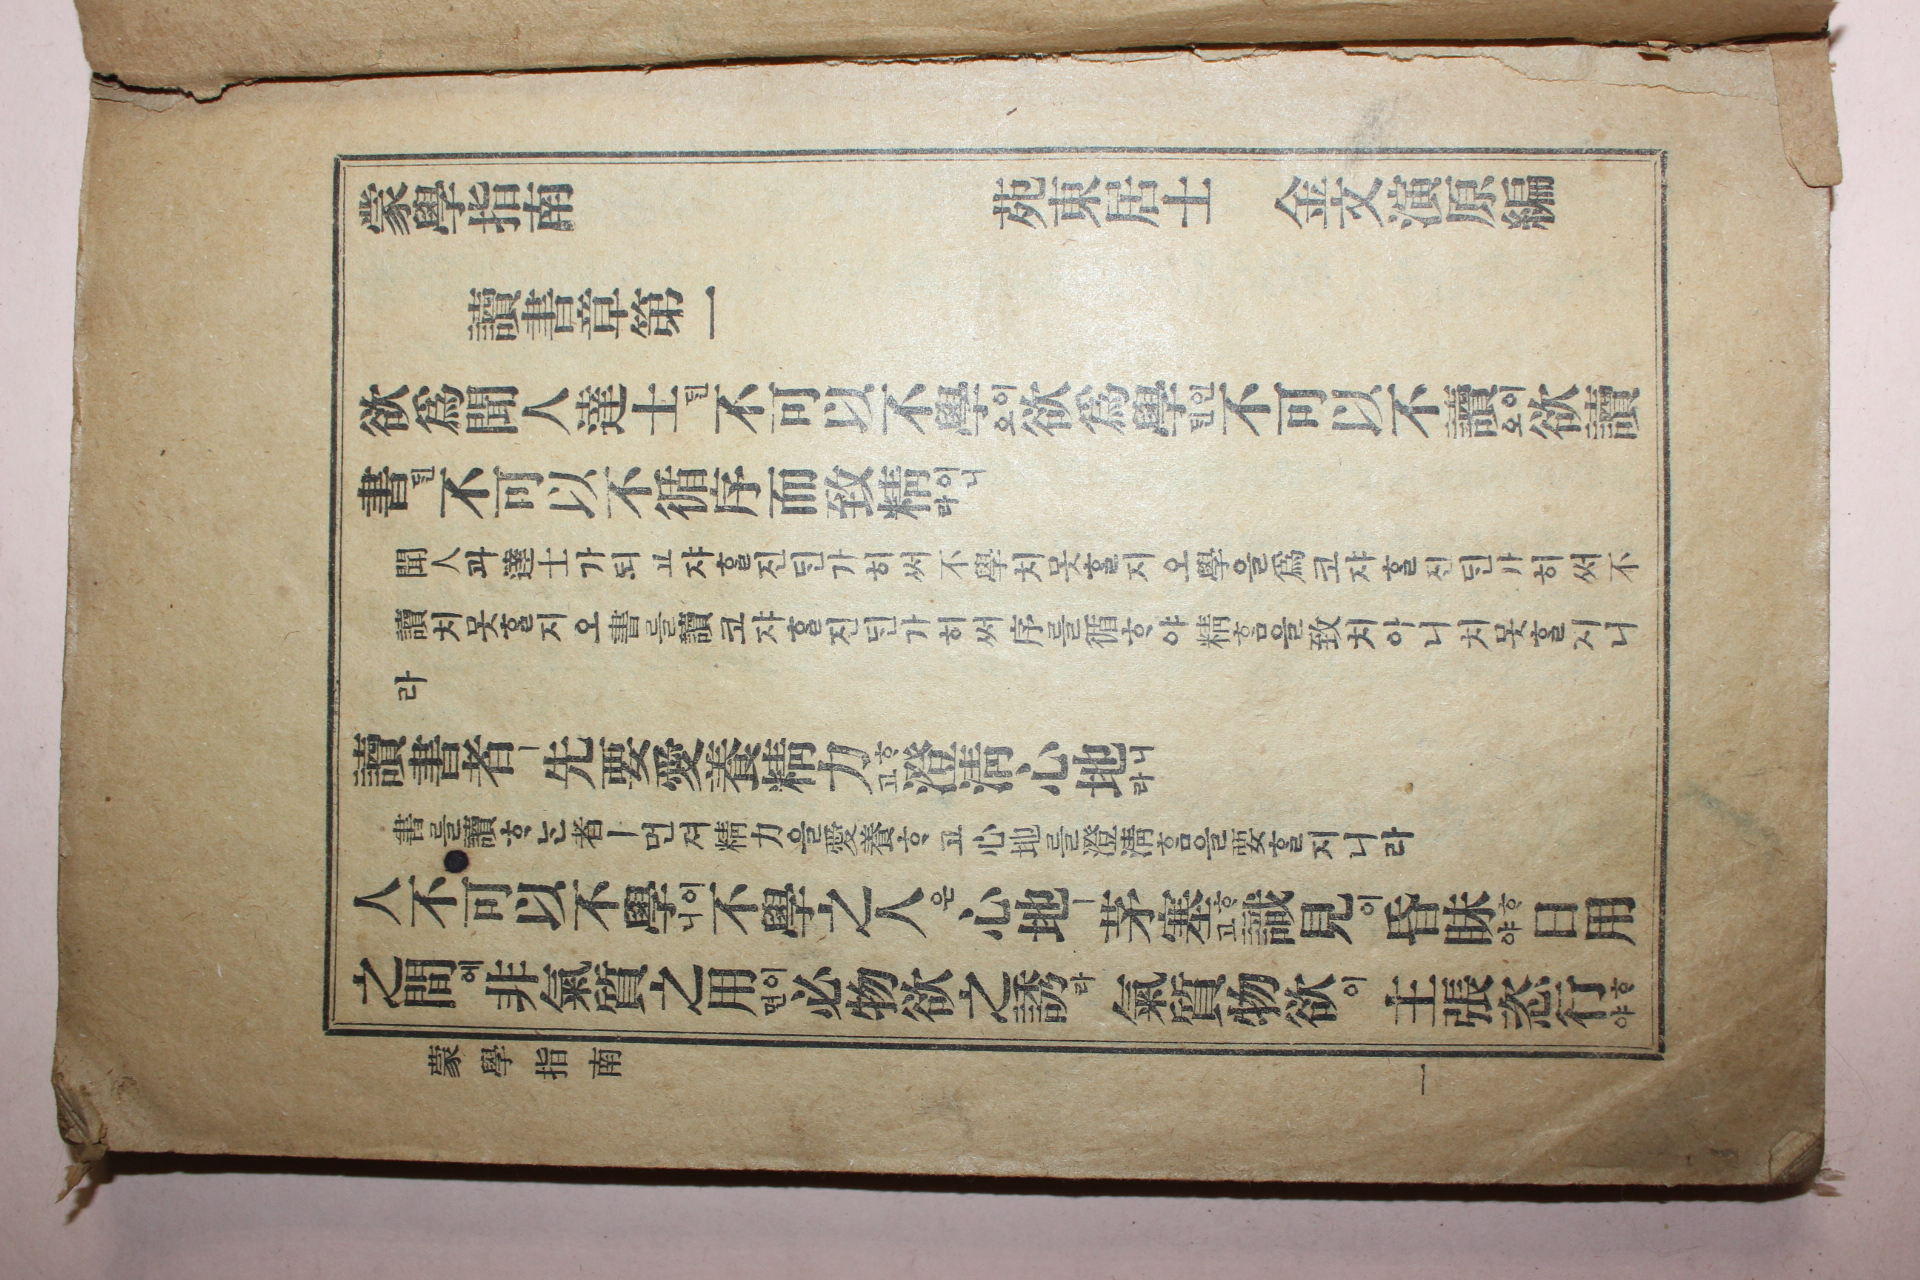 蒙學指南 苑東居士 金文演原編
讀書章第一
欲爲聞人達士틴不可以不學이오欲爲學인틴不可以不讀이오欲讀
書틴不可以不循序而致精이니라
聞人과達士가되고쟈헐진틴가히써不學치못헐지오學을爲코쟈헐진틴가히써不
讀치못헐지오書를讀코쟈헐진틴가히써序를循ᄒᆞ야精홈을致치아니치못헐지니
라
讀書者ㅣ先要愛養精力ᄒᆞ고澄淸心地니라
書를讀ᄒᆞᄂᆞᆫ者ㅣ먼져精力을愛養ᄒᆞ고心地를澄淸홈을要헐지니라
人不可以不學이니不學之人은心地ㅣ茅塞ᄒᆞ고識見이昏昧ᄒᆞ야日用
之間에非氣質之用이면必物欲之誘라氣質物欲이主張恣行ᄒᆞ야
蒙學指南 一